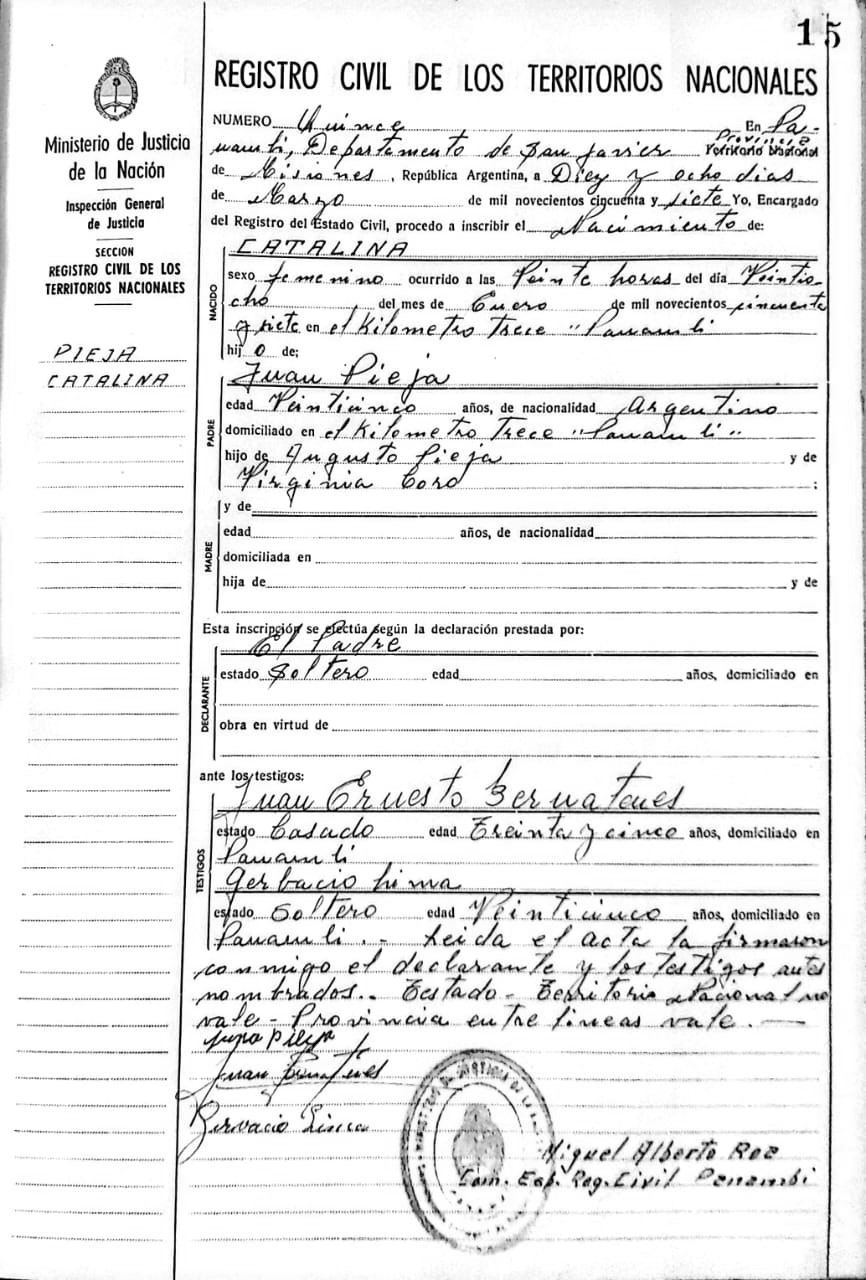 15
REGISTRO CIVIL DE LOS TERRITORIOS NACIONALES
Ministerio de Justicia
de la Nación
Inspección General
de Justicia
SECCION
REGISTRO CIVIL DE LOS
TERRITORIOS NACIONALES
PIEJA
CATALINA
NUMERO Quince En Pa-
Provincia
nambi, Departamento de San Javier Territorio Nacional
de Misiones, República Argentina, a Diez y ocho dias
de Marzo de mil novecientos cincuenta y siete Yo, Encargado
del Registro del Estado Civil, procedo a inscribir el Nacimiento de:
NACIDO
CATALINA
sexo femenino ocurrido a las Veinte horas del día Veintio-
cho del mes de Enero de mil novecientos cincuenta
y siete en el Kilometro Trece "Panambi
hij o de;
PADRE
Juan Pieja
edad Veinticinco años, de nacionalidad Argentino
domiciliado en el Kilometro Trece "Panambi"
hijo de Augusto Pieja y de
Virginia Coro ;
MADRE
y de
edad años, de nacionalidad
domiciliada en
hija de y de
Esta inscripción se efectúa según la declaración prestada por:
El Padre
DECLARANTE
estado Soltero edad años, domiciliado en
obra en virtud de
ante los testigos:
TESTIGOS
Juan Ernesto
estado Casado edad Treinta y cinco años, domiciliado en
Panambi
Gerbacio Lima
estado Soltero edad Veinticinco años, domiciliado en
Panambi.- Leida el acta la firmaron
conmigo el declarante y los testigos antes
nombrados.- Testado - Territorio Nacional no
vale - Provincia entre lineas vale. —
Juan
Miguel Alberto Roa
Com. Reg. Civil Panambi